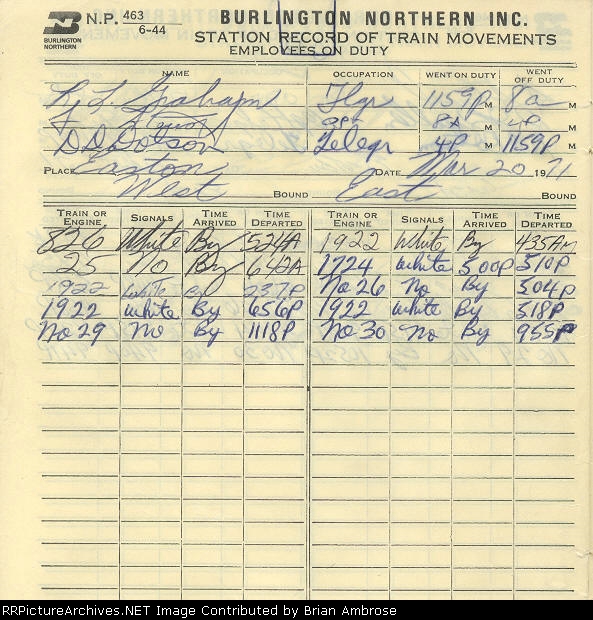 N.P. 463
6-44
BURLINGTON
NORTHERN
BURLINGTON NORTHERN INC.
STATION RECORD OF TRAIN MOVEMENTS
EMPLOYEES ON DUTY
NAME OCCUPATION WENT ON DUTY WENT OFF DUTY
L L Graham Tlgr 1159P M 8a M
opr 8A M 4P M
D D Dotson Telegr 4P M 1159P M
PLACE Easton DATE Mar 20 1971
West BOUND East BOUND
TRAIN OR ENGINE SIGNALS TIME ARRIVED TIME DEPARTED TRAIN OR ENGINE SIGNALS TIME ARRIVED TIME DEPARTED
826 White By 524A 1922 White By 435AM
25 No By 642A 1724 white 500P 510P
1922 white By 237P No 26 No By 504P
1922 white By 656P 1922 white By 518P
No 29 No By 1118P No 30 No By 955P
RailPictureArchives.NET Image Contributed by Brian Ambrose